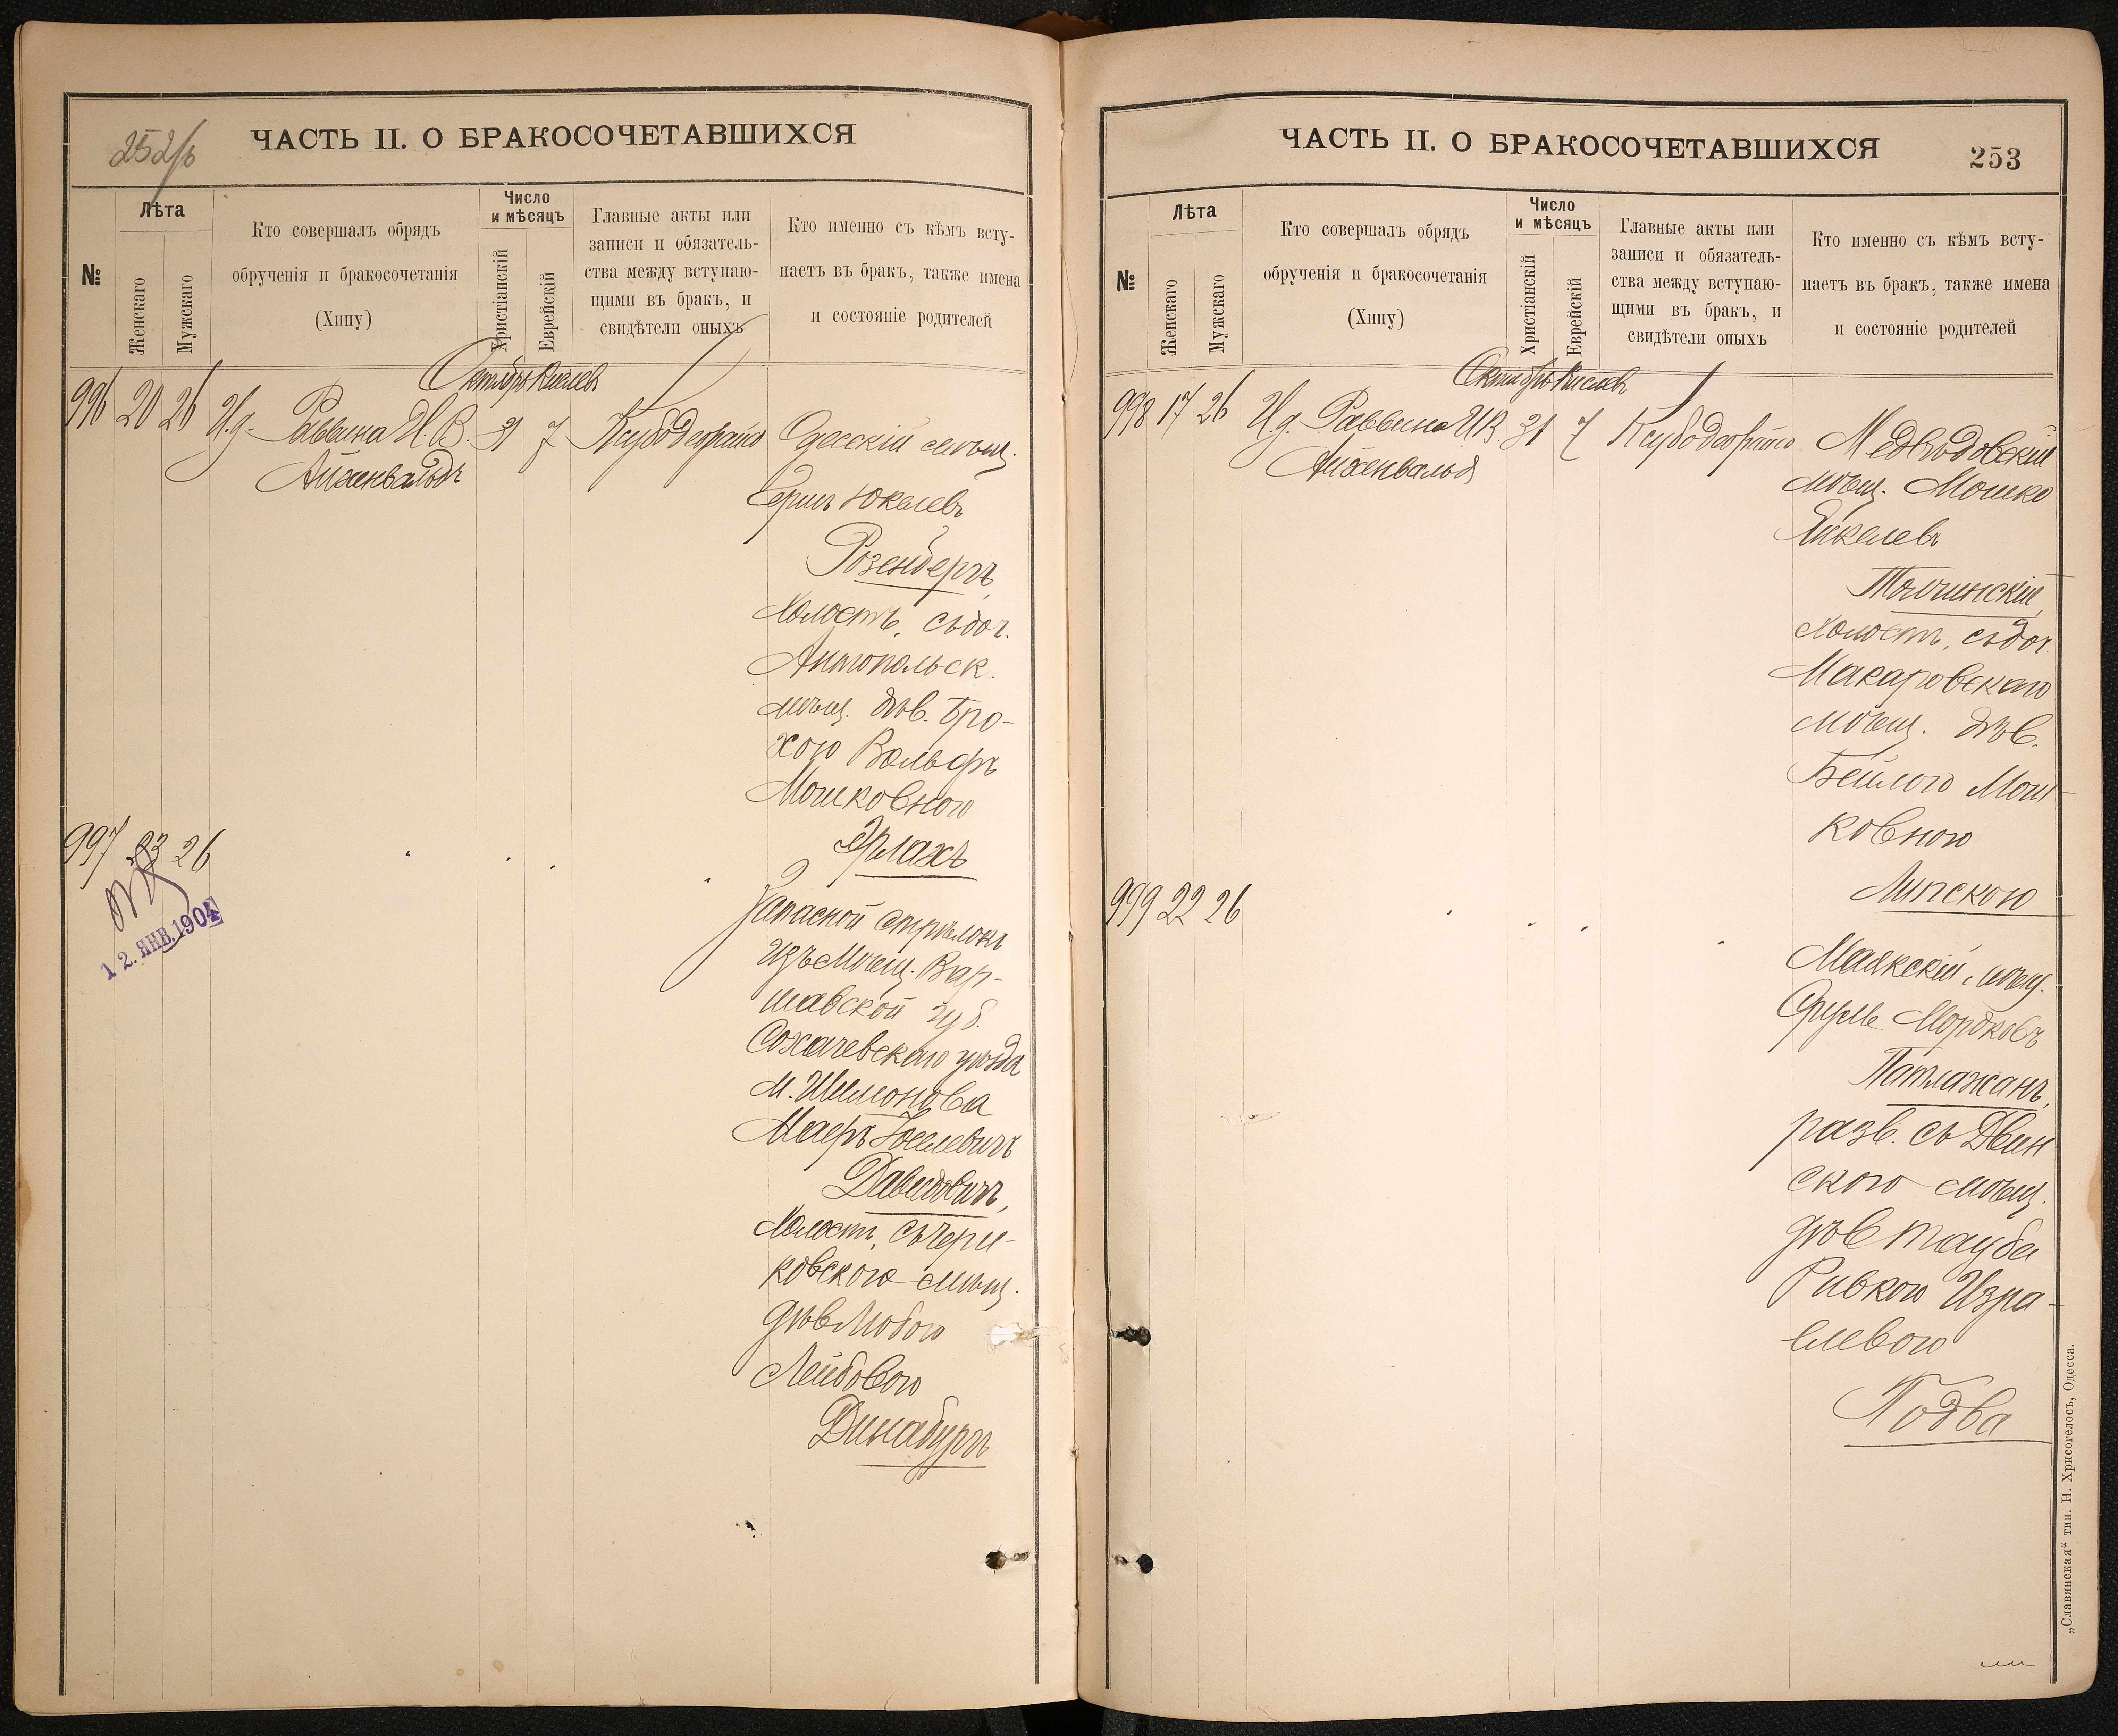 252/ъ
ЧАСТЬ II. О БРАКОСОЧЕТАВШИХСЯ
№
Лѣта
Женскаго
Мужскаго
Кто совершалъ обрядъ
обрученія и бракосочетанія
(Хипу)
Число
и мѣсяцъ
Христіанскій
Еврейскій
Главные акты или
записи и обязатель-
ства между вступаю-
щими въ бракъ, и
свидѣтели оныхъ
Кто именно съ кѣмъ всту-
паетъ въ бракъ, также имена
и состояніе родителей
Октябрь Кислевъ
996 20 26 И.д. Раввина И. В. 31 7 Ксубодеорайто Одесскій мѣщ.
Айхенвальдъ
Гершъ Юкелевъ
Розенбергъ,
холостъ, съ доч.
Антопольск.
мѣщ. дѣв. Бро-
хою Вольфъ
Мошковною
Эрлахъ
997 23 26
12. ЯНВ. 1904
Запасной стрѣлокъ
изъ мѣщ. Вар-
шавской губ.
Сохачевскаго уѣзда
Маеръ Іоселевичъ
Давидовичъ,
холостъ, съ Чери-
ковскою мѣщ.
дѣв Любою
Лейбовою
Динабургъ
ЧАСТЬ II. О БРАКОСОЧЕТАВШИХСЯ
253
№
Лѣта
Женскаго
Мужскаго
Кто совершалъ обрядъ
обрученія и бракосочетанія
(Хипу)
Число
и мѣсяцъ
Христіанскій
Еврейскій
Главные акты или
записи и обязатель-
ства между вступаю-
щими въ бракъ, и
свидѣтели оныхъ
Кто именно съ кѣмъ всту-
паетъ въ бракъ, также имена
и состояніе родителей
Октябрь Кислевъ
998 17 26 И.д. Раввина И.В. 31 7 Ксубодеорайто Медвѣдовскій
Айхенвальд
мѣщ. Мошко
Янкелевъ
Толчинскій,
холостъ, съ доч.
Макаровскаго
мѣщ. дѣв.
Бейлою Мош-
ковною
Липскою
999 22 26
Маякскій мѣщ.
Сруль Мордковъ
Патлажанъ,
разв. съ Двин
скою мѣщ.
дѣв Тауба
Ривкою Изра-
елевою
Годва
„Славянская“ тип. Н. Хрисогелосъ, Одесса.